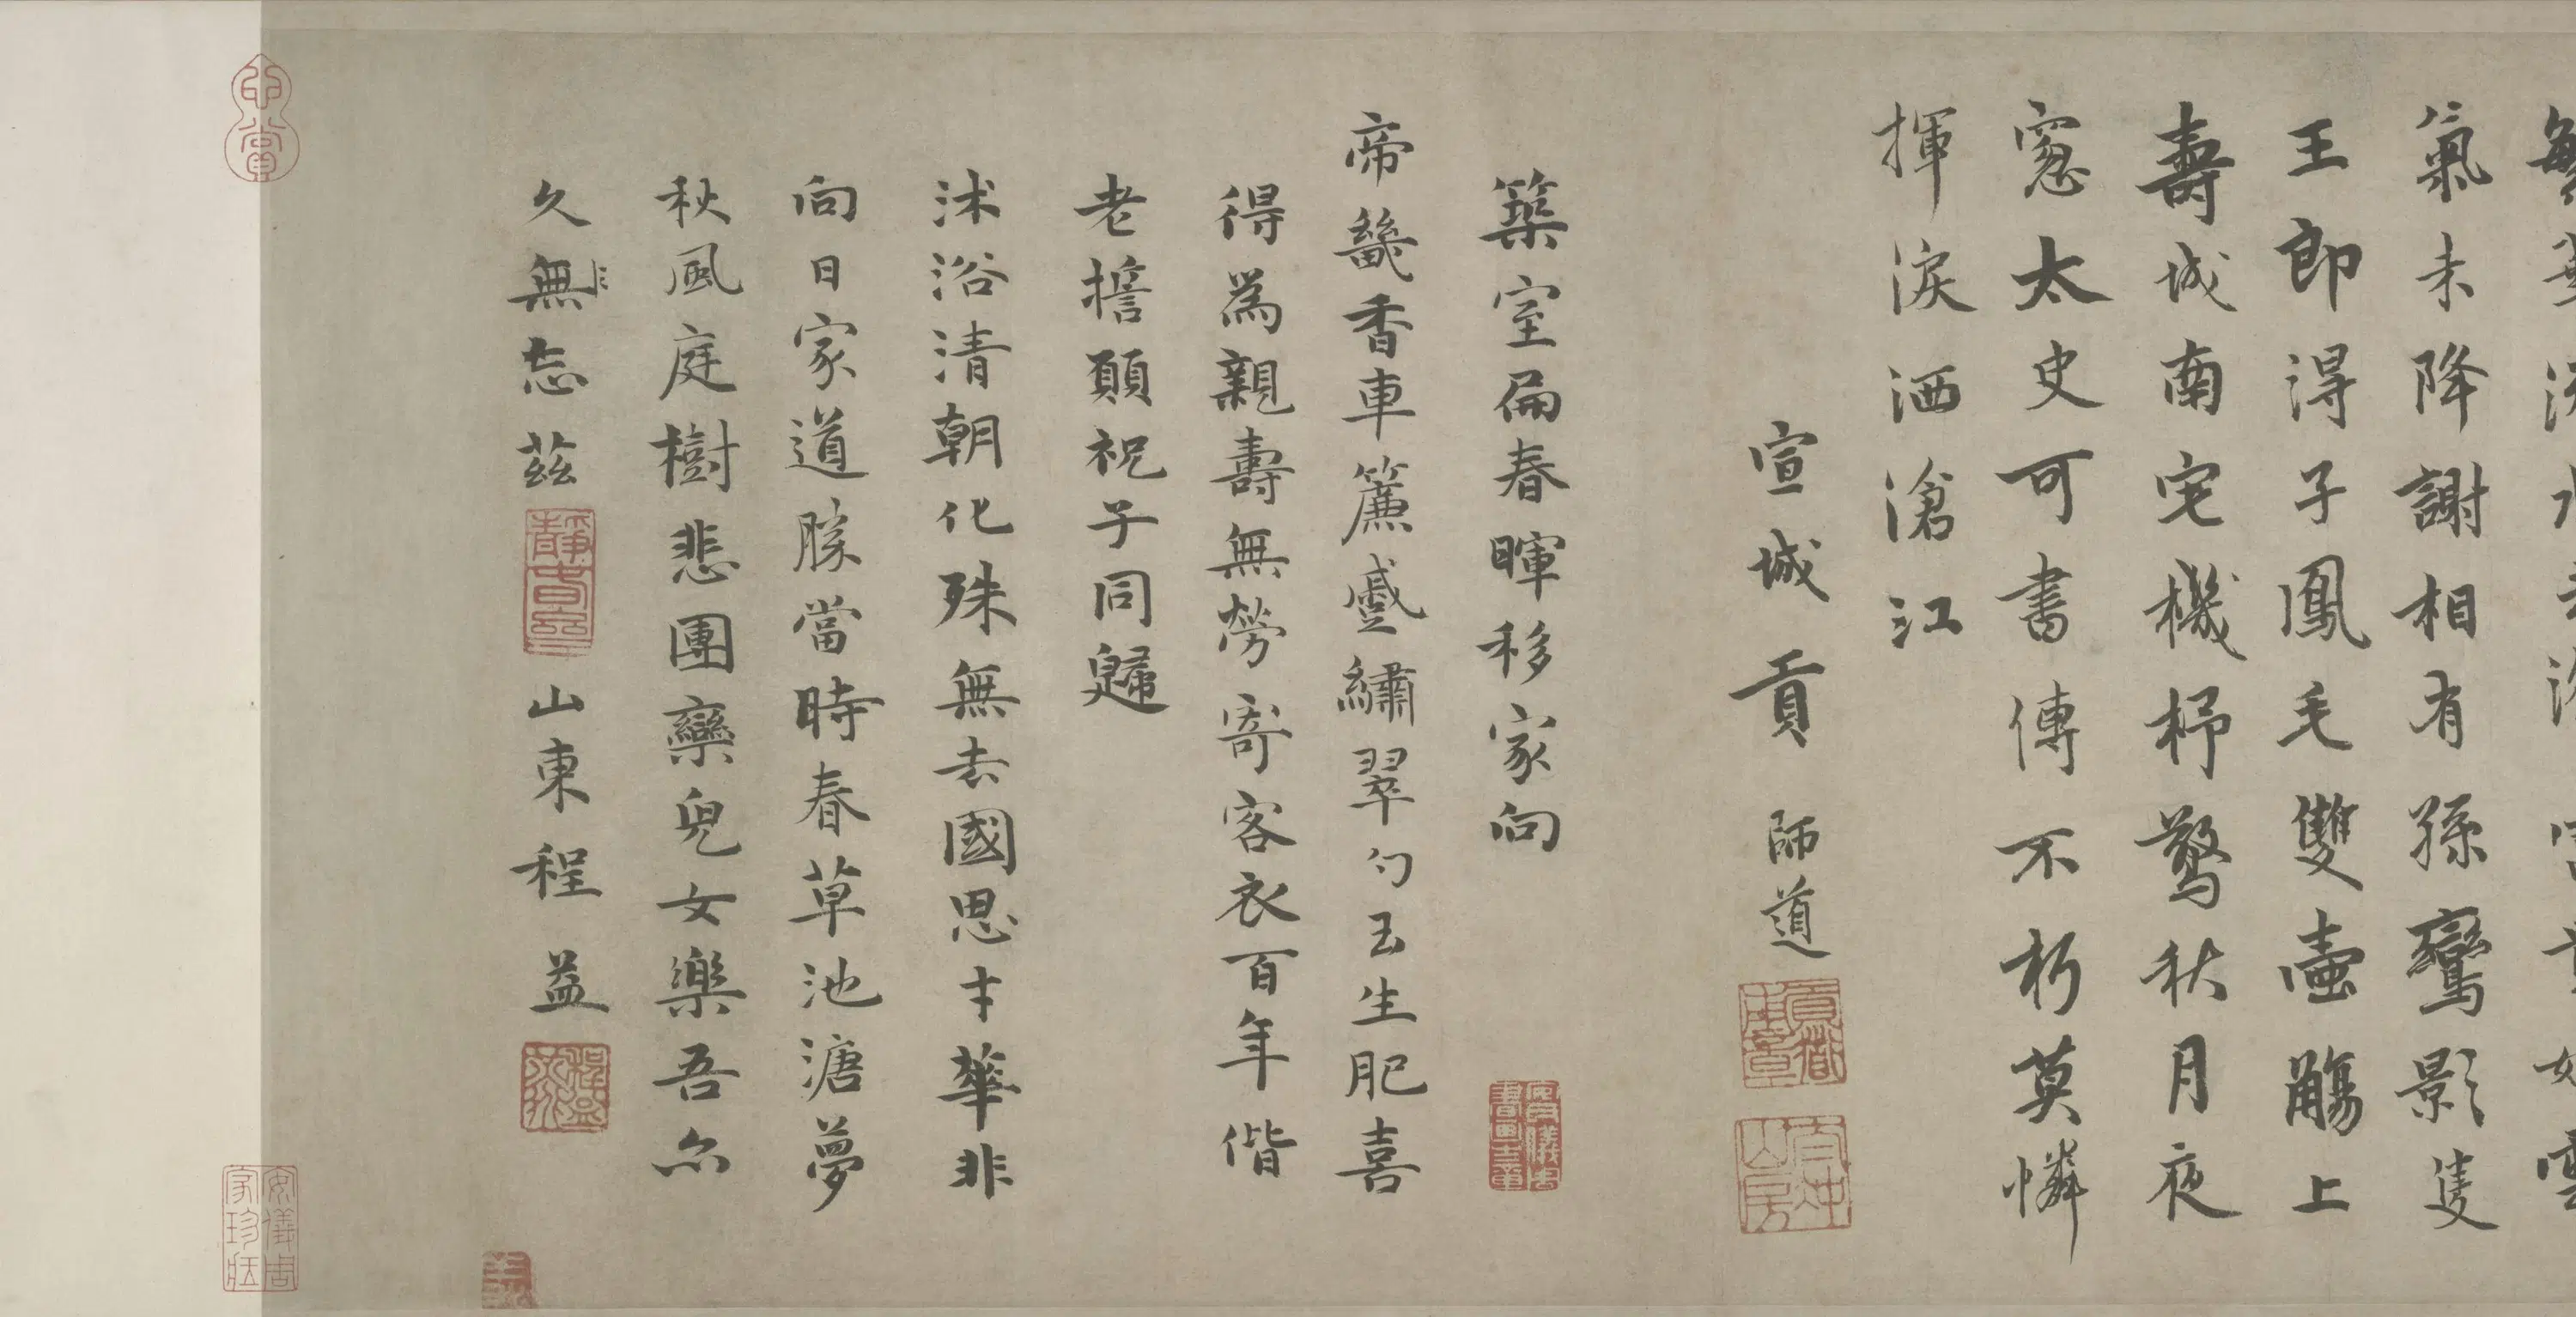 氣未降謝相有孫鸞影隻
王郎得子鳳毛雙壺觴上
壽城南宅機杼驚秋月夜
窻太史可書傳不朽莫憐
揮淚洒滄江
宣城貢師道
築室扁春暉移家向
帝畿香車簾蹙繡翠勺玉生肥喜
得為親壽無勞寄客衣百年偕
老擔願祝子同歸
沐浴清朝化殊無去國思才華非
向日家道勝當時春草池溏夢
秋風庭樹悲團欒兒女樂吾亦
久無忘茲
山東程益